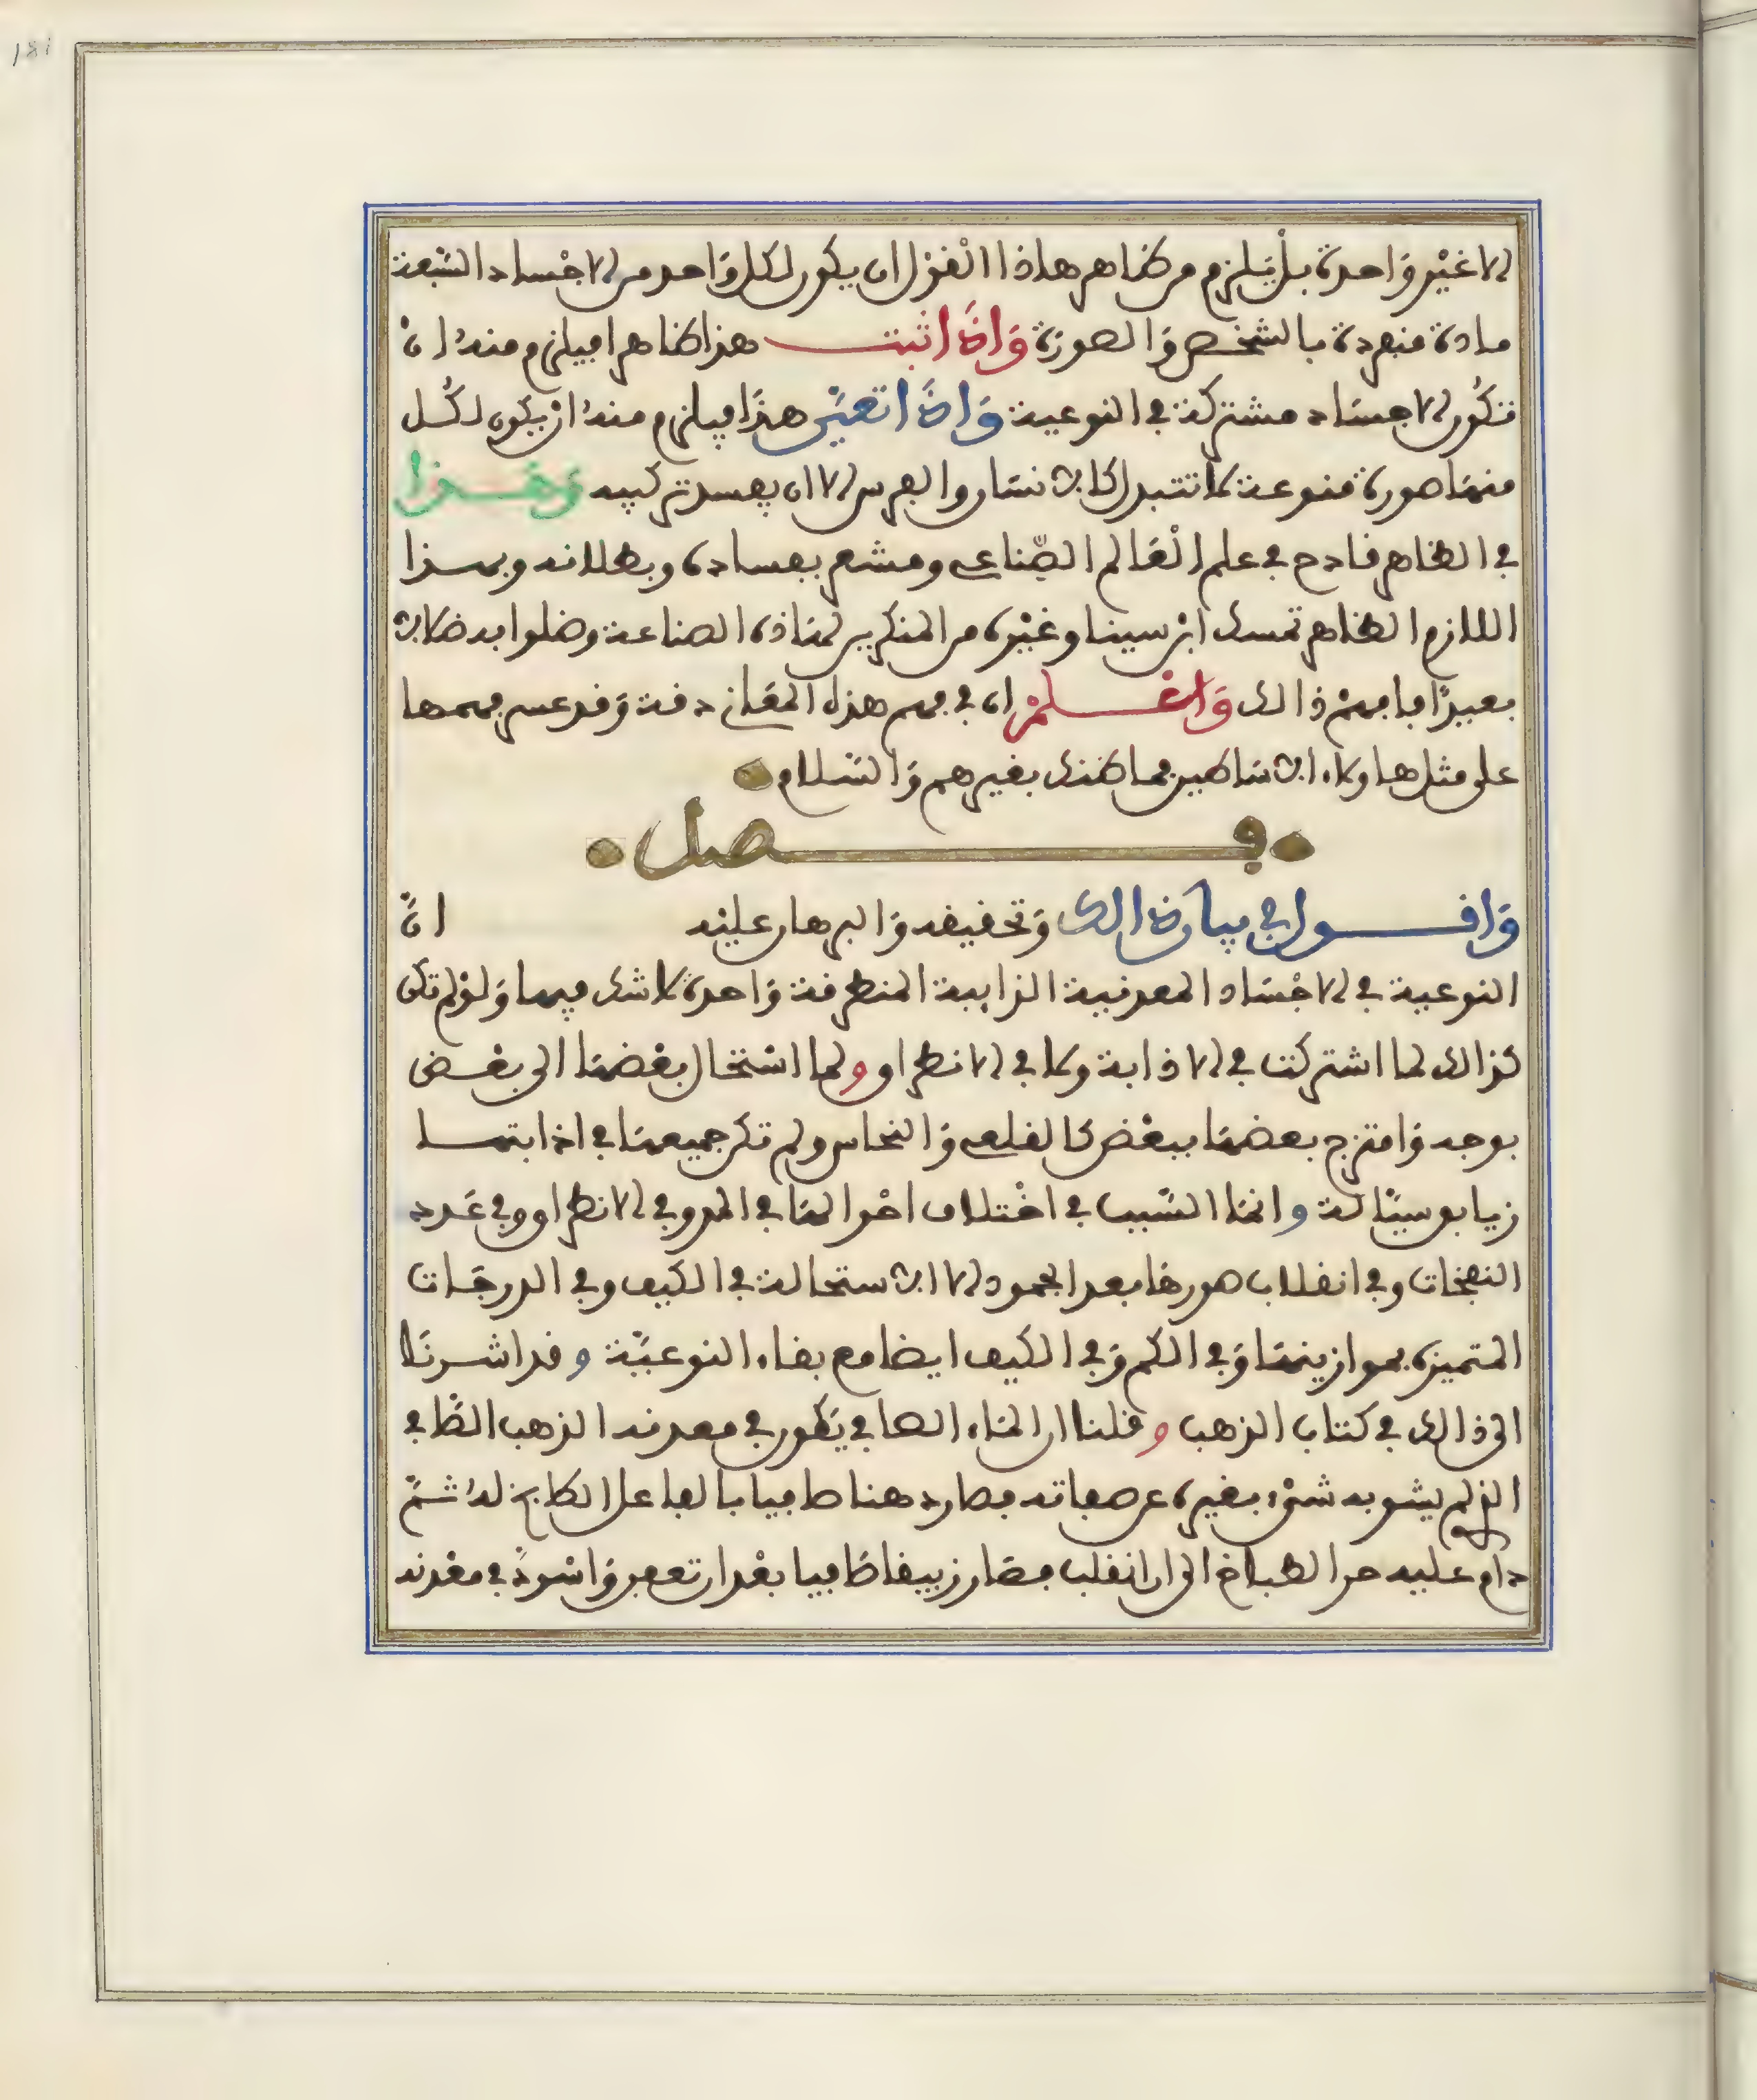 181
لا غير واحدة بل يلزم من ظاهر هاذا القول ان يكون لكل واحد من الاجساد السبعة
مادة منفردة بالشخص والصورة واذا ثبت هذا ظاهرا فيلزم منه ان
تكون الاجساد مشتركة في النوعية واذا تعين هذا فيلزم منه ان يكون لكل
منها صورة منوعة لا تتبدل كالانسان والفرس الا ان يفسد تركيبه وهذا
في الظاهر قادح في علم العالم الصناعي ومشعر بفساده وبطلانه وبهذا
اللازم الظاهر تمسك ابن سينا وغيره من المنكرين لهاذه الصناعة وضلوا به ضلالا
بعيدا فافهم ذالك واعلم ان في فهم هذا المعنى دقة وقد عسر فهمها
على مثل هاولاء الاساطين فما ظنك بغيرهم والسلام
فصل
واقول في بيان ذالك وتحقيقه والبرهان عليه ان
النوعية في الاجساد المعدنية الذايبة المنطرقة واحدة لا شك فيها ولو لم تكن
كذالك لما اشتركت في الاذابة ولا في الانطراق ولما استحال بعضها الى بعض
بوجه وامتزج بعضها ببعض كالقلعي والنحاس ولم تكن جميعها في اذابتها
زيابق سيالة وانما السبب في اختلاف احوالها في المد وفي الانطراق وفي عدد
النضجات وفي انقلاب صورها بعد الجمود الا الاستحالة في الكيف وفي الدرجات
المتميزة بموازينها وفي الكم وفي الكيف ايضا مع بقاء النوعية وقد اشرنا
الى ذالك في كتاب الذهب وقلنا ان الماء الصافي يكون في معدنه الذهب الصافي
الذي لم يشوبه شيء بغيره عن صفاته فصار دهنا صافيا بالفاعل الطابخ له ثم
دام عليه حر الطباخ الى ان انقلب فصار زيبقا صافيا بعد ان تعفن واسود في معدنه